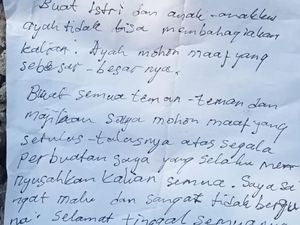 Buat Istri dan anak-anakku
ayah tidak bisa membahagiakan
kalian. Ayah mohon maaf yang
sebesar-besarnya.
Buat semua teman-teman dan
saya mohon maaf yang
setulus-tulusnya atas segala
perbuatan saya yang selalu men-
nyusahkan kalian semua. Saya sa-
ngat malu dan sangat tidak bergu
na. Selamat tinggal semuanya